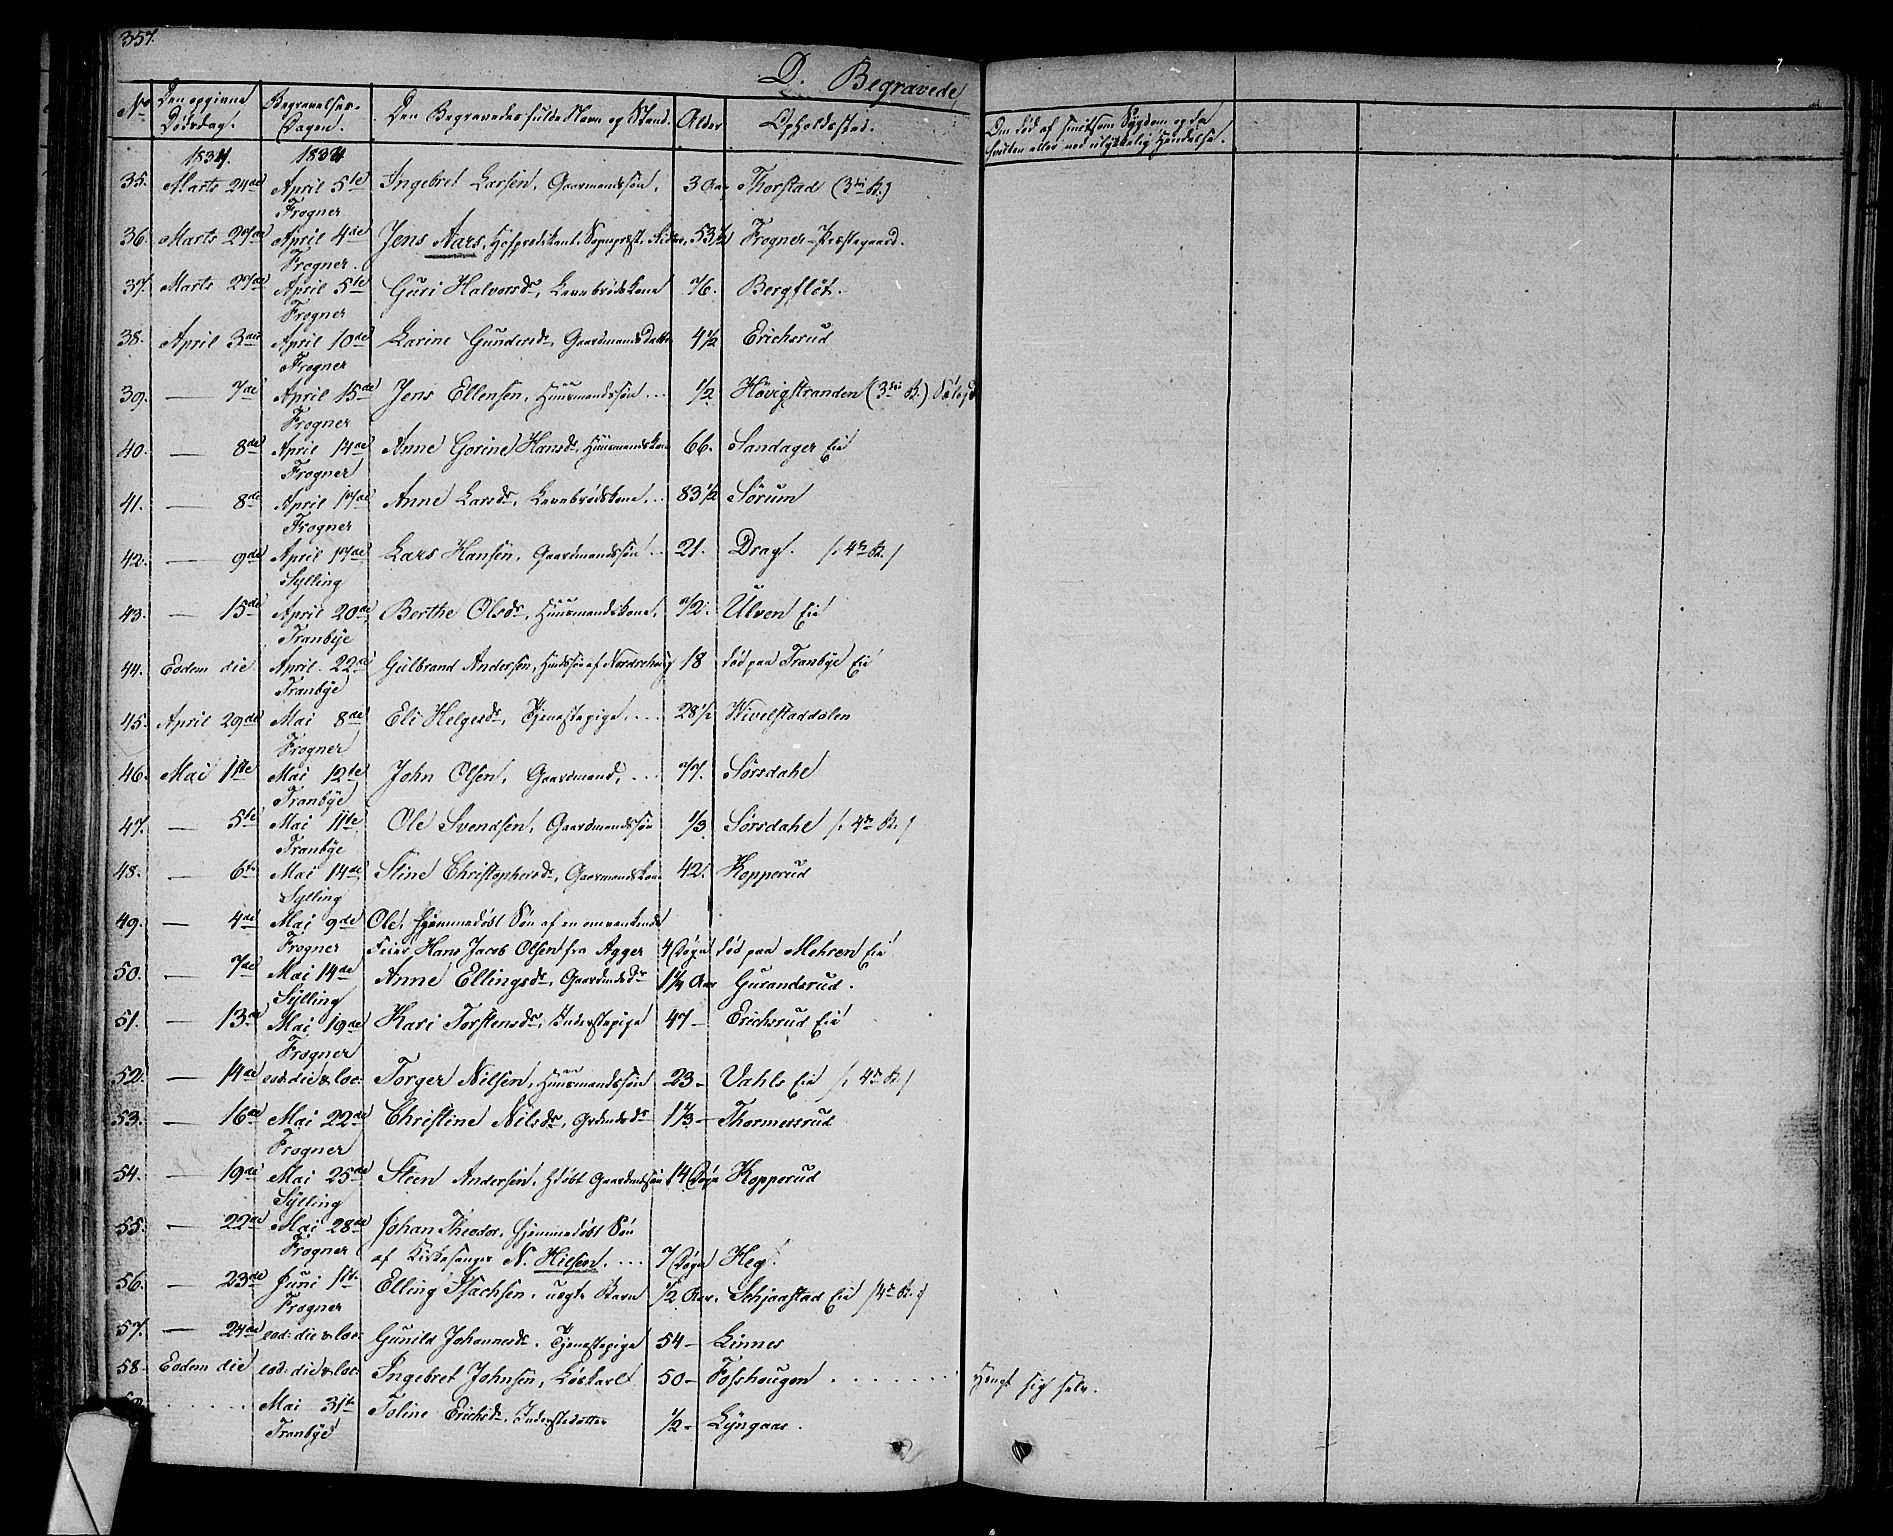 357.
D. Begravede
No Den opgivne Dødsdag. Begravelses-Dagen. Den Begravedes fulde Navn og Stand. Alder Opholdssted. Om død af smitsom Sygdom og da hvilken eller ved ulykkelig Hændelse.
1834. 1834
35. Marts 24de April 5te Ingebret Larsen, Gaardmandssøn, 3 Aar Thorstad (3die K.)
Frogner
36. Marts 27de April 4de Jens Aars, Hofpredikant, Sognepræst, Ridder, 53½ Frogner-Præstegaard.
Frogner.
37. Marts 27de April 5te Guri Halvorsdr, Levebrødskone 76. Bergflöt.
Frogner
38. April 3die April 10de Karine Gundersdr, Gaardmandsdatter 4½ Erichsrud
Frogner
39. — 7de April 15de Jens Ellensen, Huusmandssøn... ½ Høvigstranden (3die K.)
Frogner
40. — 8de April 14de Anne Gorine Hansdr, Huusmandskone 66. Sandager Eie
Frogner
41. — 8de April 17de Anne Larsdr, Levebrødskone... 83½ Sörum
Frogner
42. — 9de April 17de Lars Hansen, Gaardmandssøn... 21. Drag. /: 4de K. /
Sylling
43. — 15de April 20de Berthe Olsdr, Huusmandskone, 72. Ulven Eie
Tranbye
44. Eodem die April 22de Gulbrand Andersen, af Nordrehoug 18 død paa Tranbye Eie
Tranbye
45. April 29de Mai 8de Eli Helgesdr, Tjenestepige.... 28½ Wivelstaddalen
Frogner
46. Mai 1ste Mai 12te John Olsen, Gaardmand, ... 77. Sørsdahl
Tranbye
47. — 5te Mai 11te Ole Svendsen, Gaardmandssøn ⅓ Sørsdahl /: 4de K. /
Tranbye
48. — 6te Mai 14de Stine Christophersdr, Gaarmandskone 42. Kopperud
Sylling
49. — 4de Mai 9de Ole, hjemmedøbt Søn af en omvankende
Frogner Feier Hans Jacob Olsen fra Agger 4 Døgn død paa Mehren Eie
50. — 7de Mai 14de Anne Ellingsdr, Gaardmdsdr 1¼ Aar Gurandsrud.
Sylling
51. — 13de Mai 19de Kari Torstensdr, Inderstepige 47 – Erichsrud Eie
Frogner
52. — 14de eod: die & loc: Torger Nilsen, Huusmandssøn 23 – Vahle Eie /: 4de K /
53. — 16de Mai 22de Christine Nilsdr, Grdmdsdr 1⅔ – Thormersrud
Frogner
54. — 19de Mai 25de Steen Andersen, hdøbt Gaardmdssøn 14 Døgn Kopperud
Sylling
55. — 22de Mai 28de Johan Theodor, hjemmedøbt Søn
Frogner af Kirkesanger N. Hielsen. .... 7 Døgn Heg.
56. — 23de Juni 1ste Elling Isachsen, uægte Barn ½ Aar. Schjaastad Eie /4de K. /
Frogner
57. — 24de eod: die & loc: Gunild Johannesdr. Tjenestepige 54 – Linnes
58 – Eodem die eod: die & loc: Ingebret Johnsen, Løskarl 50 – Foshougen ........ Hengt sig selv.
....... Mai 31te Toline Erichsdr, Inderstedatter ½ – Lyngaas.
Tranbye